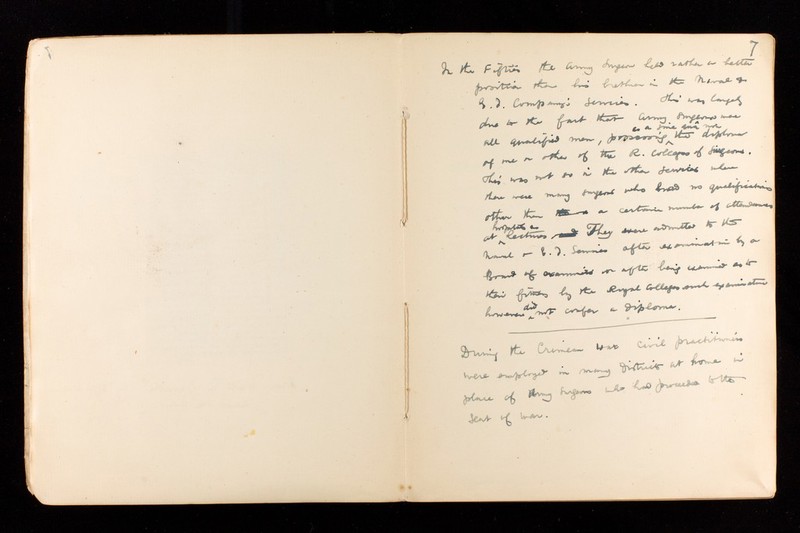 7
In the Fifties the Army Surgeon had rather a better
position than his brethren in the Naval &
E. I. Company's Services. This was largely
due to the fact that Army Surgeons were
as a sine qua non
all qualified men, possessing the diploma
of one or other of the R. Colleges of Surgeons.
This was not so in the other Services where
there were many Surgeons who had no qualifications
other than a certain number of attendances
hospitals &
at Lectures They were admitted to the
Naval or E. I. Services after examination by a
Board of examiners or after being examined as to
their fitness by the Royal Colleges such examination
did
however not confer a diploma.
During the Crimean War civil practitioners
were employed in many Districts at home in
place of Army Surgeons who had proceeded to the
Seat of War.